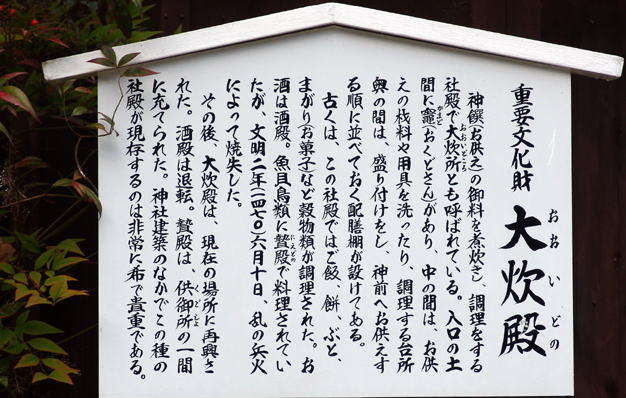 重要文化財 大炊殿
おおいどの
神饌(お供え)の御料を煮炊きし、調理をする
社殿で大炊所とも呼ばれている。入口の土
おおいどころ
間に竈(おくどさん)があり、中の間は、お供
かまど
えの材料や用具を洗ったり、調理する台所
奥の間は、盛り付けをし、神前へお供えす
る順に並べておく配膳棚が設けてある。
古くは、この社殿ではご飯、餅、ぶと、
まがり(お菓子)など穀物類が調理された。お
酒は酒殿。魚貝鳥類は贄殿で料理されてい
にえどの
たが、文明二年(一四七〇)六月十日、乱の兵火
によって焼失した。
その後、大炊殿は、現在の場所に再興さ
れた。酒殿は退転。贄殿は、供御所の一間
くごしょ
に充てられた。神社建築のなかでこの種の
社殿が現存するのは非常に希で貴重である。